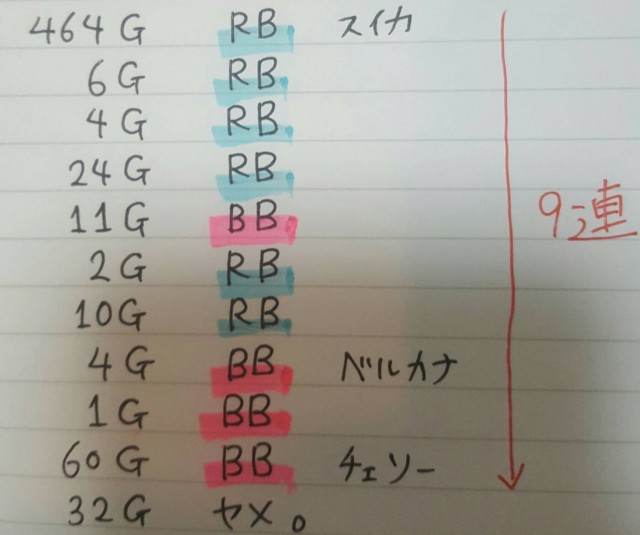 464G RB スイカ
6G RB
4G RB
24G RB
11G BB
9連
2G RB
10G RB
4G BB ベルカナ
1G BB
60G BB チェリー
32G ヤメ。